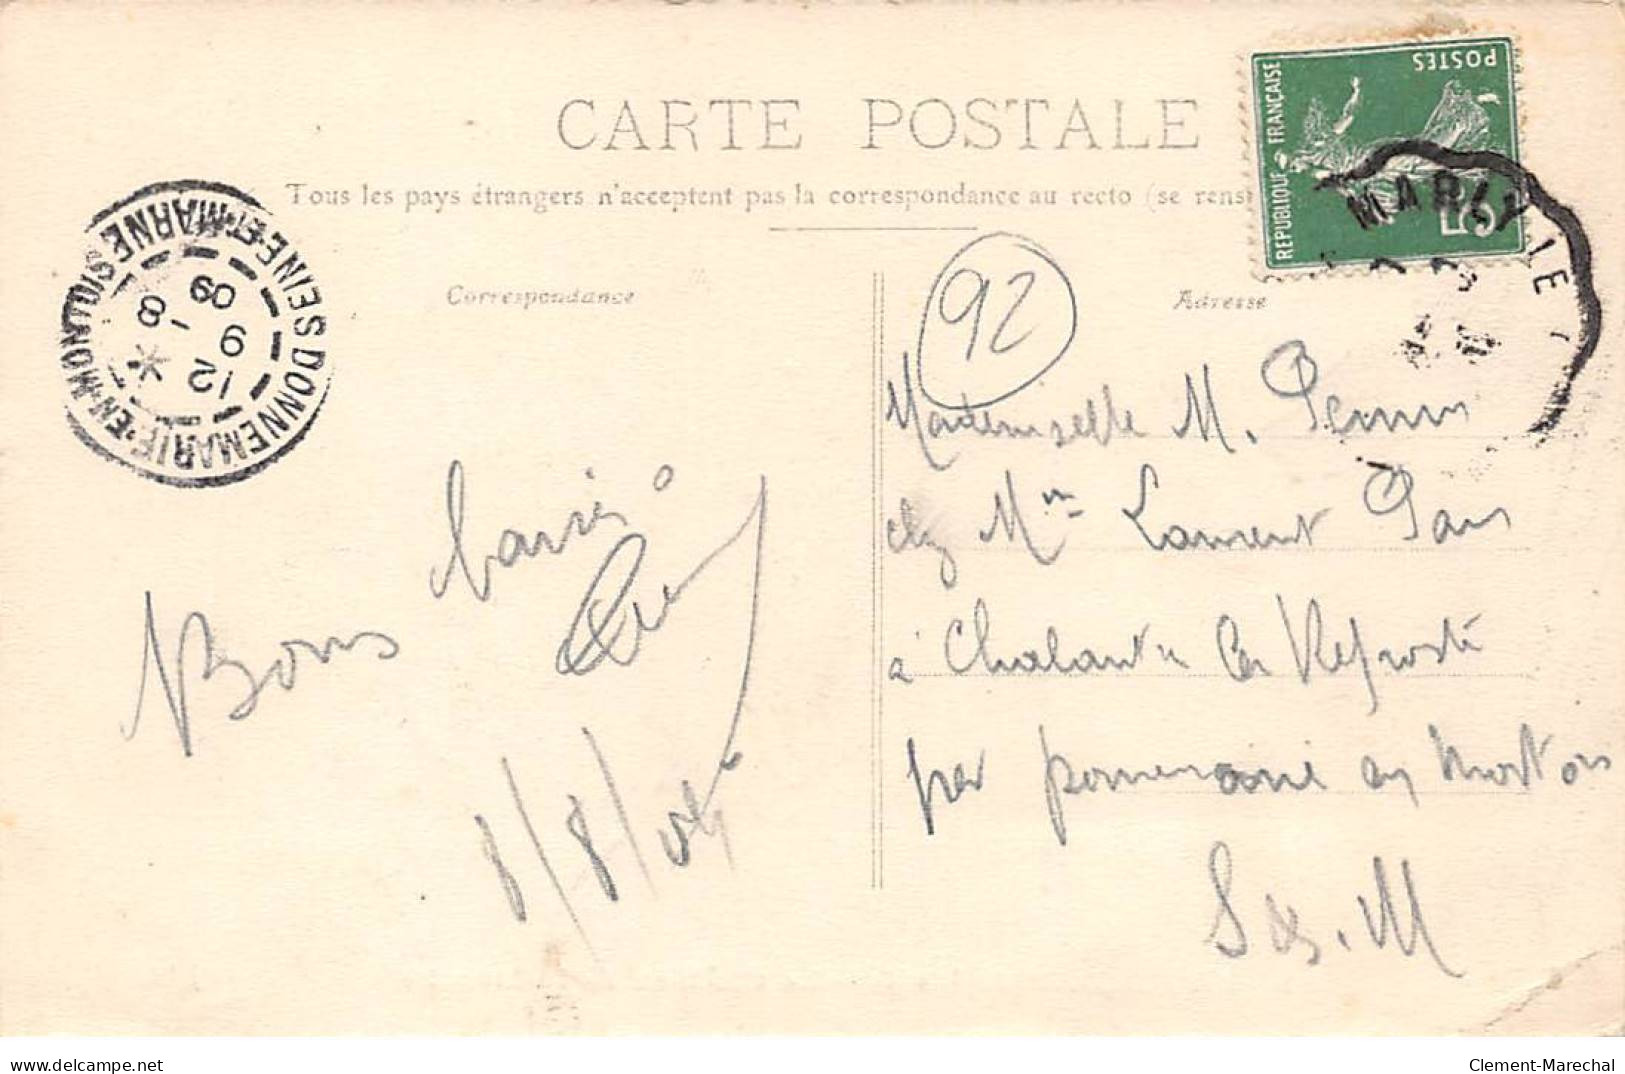 CARTE POSTALE
Tous les pays étrangers n'acceptent pas la correspondance au recto (se rens
Correspondance
Adresse
REPUBLIQUE FRANÇAISE
POSTES
5
MARLY LE
DONNEMARIE-EN-MONTOIS
SEINE-ET-MARNE
12
9 -8
09
92
Bons baisers
8/8/09
Mademoiselle M. Perrin
chez Mme Laurent
à Chalautre la Reposte
par Donnemarie en Montois
S et M
delcampe.net
Clement-Marechal